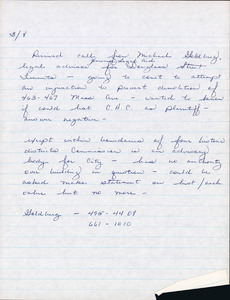 3/8
Received call from Michael Goldberg,
Young Legal Aid
legal advisor for Douglass Street
Tenants - going to court to attempt
an injunction to prevent demolition of
463-467 Mass Ave - wanted to know
if could list C.H.C. as plaintiff -
answer negative -
except within boundaries of four historic
districts Commission is an advisory
body for City - has no authority
over building in question - could be
asked make statement on hist/arch
value but no more -
Goldberg - 495-4408
661-1010